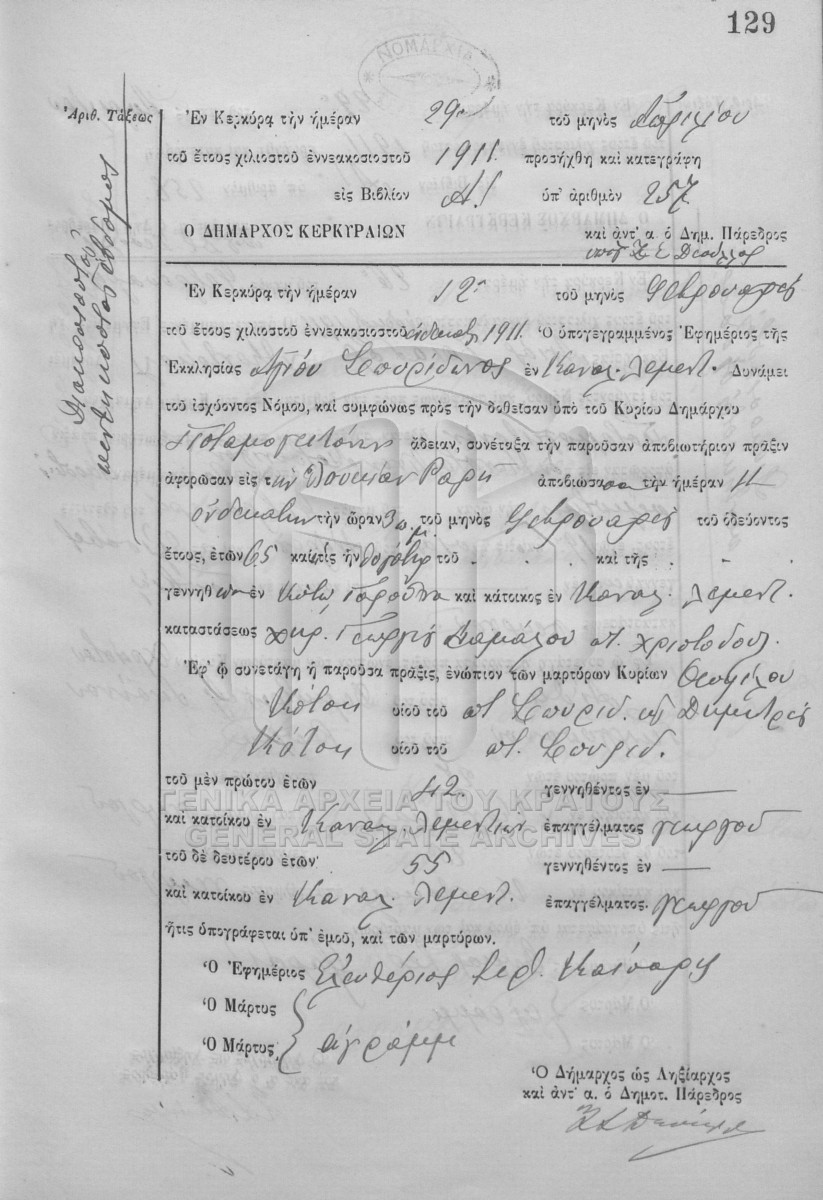 129
ΝΟΜΑΡΧΙΑ
Ἀριθ. Τάξεως
Διακοσιοστὸς
πεντηκοστὸς ἕβδομος
Ἐν Κερκύρᾳ τὴν ἡμέραν 29 τοῦ μηνὸς Ἀπριλίου
τοῦ ἔτους χιλιοστοῦ ἐννεακοσιοστοῦ 1911 προσήχθη καὶ κατεγράφη
εἰς Βιβλίον Α! ὑπ' ἀριθμὸν 257
Ο ΔΗΜΑΡΧΟΣ ΚΕΡΚΥΡΑΙΩΝ
καὶ ἀντ' α. ὁ Δημ. Πάρεδρος
Ἐν Κερκύρᾳ τὴν ἡμέραν 12 τοῦ μηνὸς Φεβρουαρίου
τοῦ ἔτους χιλιοστοῦ ἐννεακοσιοστοῦ 1911. Ὁ ὑπογεγραμμένος Ἐφημέριος τῆς
Ἐκκλησίας Ἁγίου Σπυρίδωνος ἐν Καναλ. Δυνάμει
τοῦ ἰσχύοντος Νόμου, καὶ συμφώνως πρὸς τὴν δοθεῖσαν ὑπὸ τοῦ Κυρίου Δημάρχου
Ποταμογειτόνων ἄδειαν, συνέταξα τὴν παροῦσαν ἀποβιωτήριον πρᾶξιν
ἀφορῶσαν εἰς τὴν Λουκίαν ἀποβιώσασαν τὴν ἡμέραν 11
ἑνδεκάτην τὴν ὥραν 3 μ.μ. τοῦ μηνὸς Φεβρουαρίου τοῦ ὁδεύοντος
ἔτους, ἐτῶν 65 καὶ ἥτις ἦν θυγάτηρ τοῦ . . καὶ τῆς . .
γεννηθεῖσα ἐν Κάτω Γαρούνα καὶ κάτοικος ἐν Καναλ.
καταστάσεως χηρ. Γεωργίου Δαμάλου π. Χριστοδούλ.
Ἐφ' ᾧ συνετάγη ἡ παροῦσα πρᾶξις, ἐνώπιον τῶν μαρτύρων Κυρίων Θωμίλου
Κότση υἱοῦ τοῦ π. Σπυρίδ. καὶ Δημητρίου
Κότση υἱοῦ τοῦ π. Σπυρίδ.
τοῦ μὲν πρώτου ἐτῶν 42. γεννηθέντος ἐν —
ΓΕΝΙΚΑ ΑΡΧΕΙΑ ΤΟΥ ΚΡΑΤΟΥΣ
καὶ κατοίκου ἐν Καναλ. ἐπαγγέλματος γεωργοῦ
GENERAL STATE ARCHIVES
τοῦ δὲ δευτέρου ἐτῶν 55 γεννηθέντος ἐν —
καὶ κατοίκου ἐν Καναλ. ἐπαγγέλματος. γεωργοῦ
ἥτις ὑπογράφεται ὑπ' ἐμοῦ, καὶ τῶν μαρτύρων.
Ὁ Ἐφημέριος Ἐλευθέριος Καίσαρης
Ὁ Μάρτυς
Ὁ Μάρτυς ἀγράμμ
Ὁ Δήμαρχος ὡς Ληξίαρχος
καὶ ἀντ' α. ὁ Δημοτ. Πάρεδρος